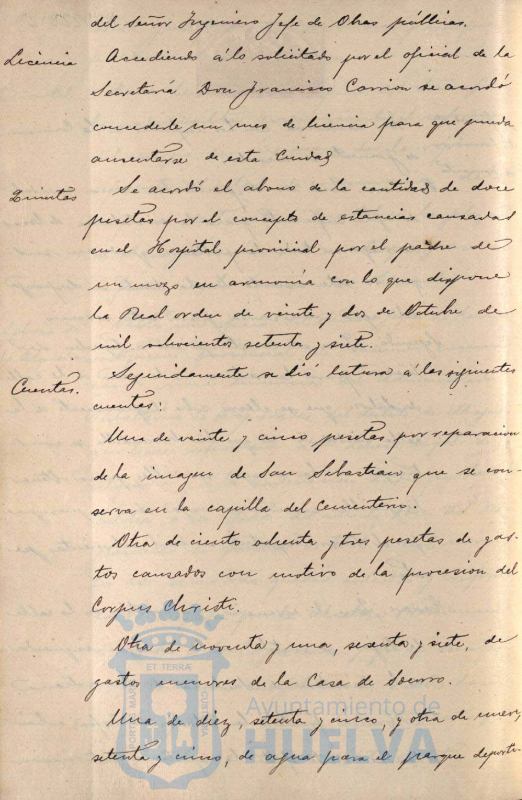 del Señor Ingeniero Jefe de Obras públicas.
Licencia Accediendo á lo solicitado por el oficial de la
Secretaría Don Francisco Carrion se acordó
concederle un mes de licencia para que pueda
ausentarse de esta Ciudad
Quintas Se acordó el abono de la cantidad de doce
pesetas por el concepto de estancias causadas
en el Hospital provincial por el padre de
un mozo en armonía con lo que dispone
la Real orden de veinte y dos de Octubre de
mil ochocientos setenta y siete.
Cuentas. Seguidamente se dió lectura á las siguientes
cuentas:
Una de veinte y cinco pesetas por reparacion
de la imagen de San Sebastian que se con-
serva en la capilla del Cementerio.
Otra de ciento ochenta y tres pesetas de gas-
tos causados con motivo de la procesion del
Corpus Christi.
Otra de noventa y una, sesenta y siete, de
gastos menores de la Casa de Socorro.
Una de diez, setenta y cinco, y otra de nueve,
setenta y cinco, de agua para el parque deporti-
ET TERRÆ
Ayuntamiento de
HUELVA